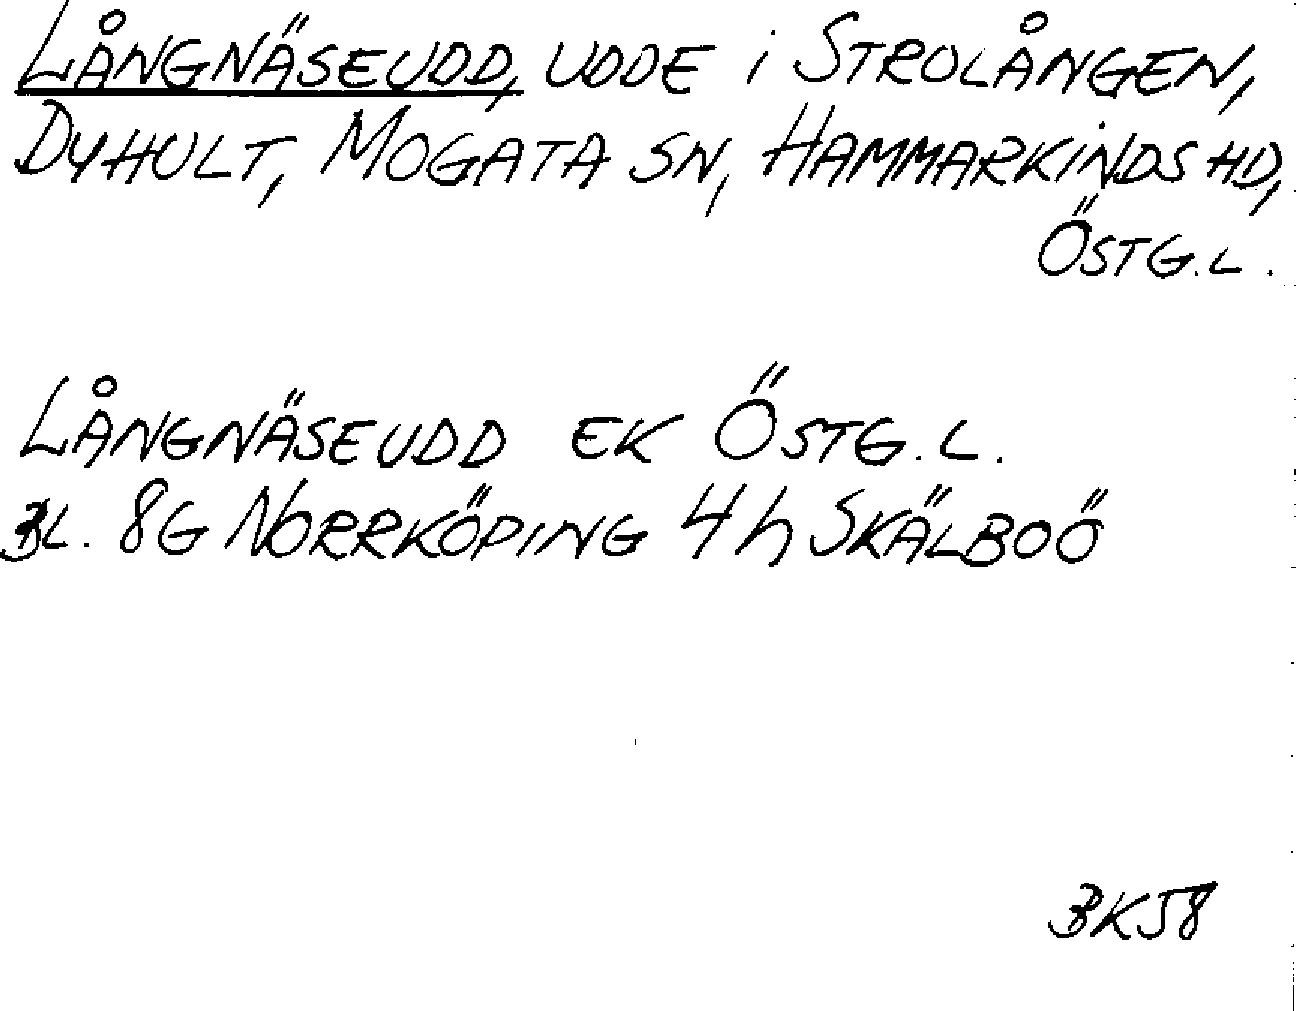 LÅNGNÄSEUDD, UDDE i STROLÅNGEN,
DYHULT, MOGATA SN, HAMMARKINDS HD,
ÖSTG.L.
LÅNGNÄSEUDD EK ÖSTG.L.
BL. 8G NORRKÖPING 4h SKÄLBOÖ
BK58